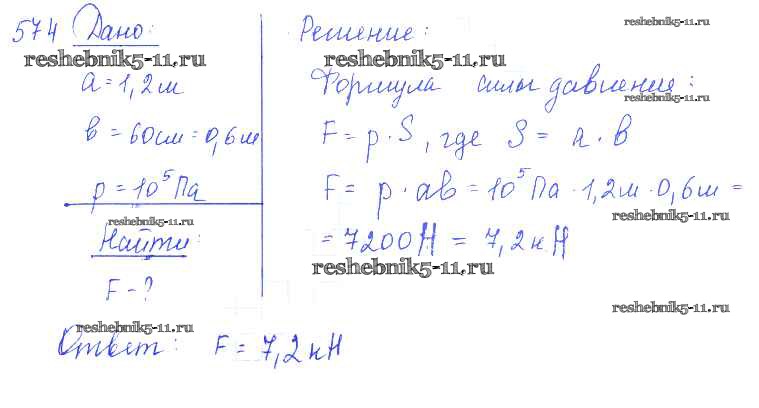 574 Дано:
reshebnik5-11.ru
a = 1,2 м
в = 60 см = 0,6 м
p = 10⁵ Па
reshebnik5-11.ru
Найти:
F - ?
reshebnik5-11.ru
Решение:
reshebnik5-11.ru
reshebnik5-11.ru
Формула силы давления:
reshebnik5-11.ru
F = p · S, где S = a · в
F = p · aв = 10⁵ Па · 1,2 м · 0,6 м =
reshebnik5-11.ru
= 7200 Н = 7,2 кН
reshebnik5-11.ru
reshebnik5-11.ru
Ответ: F = 7,2 кН